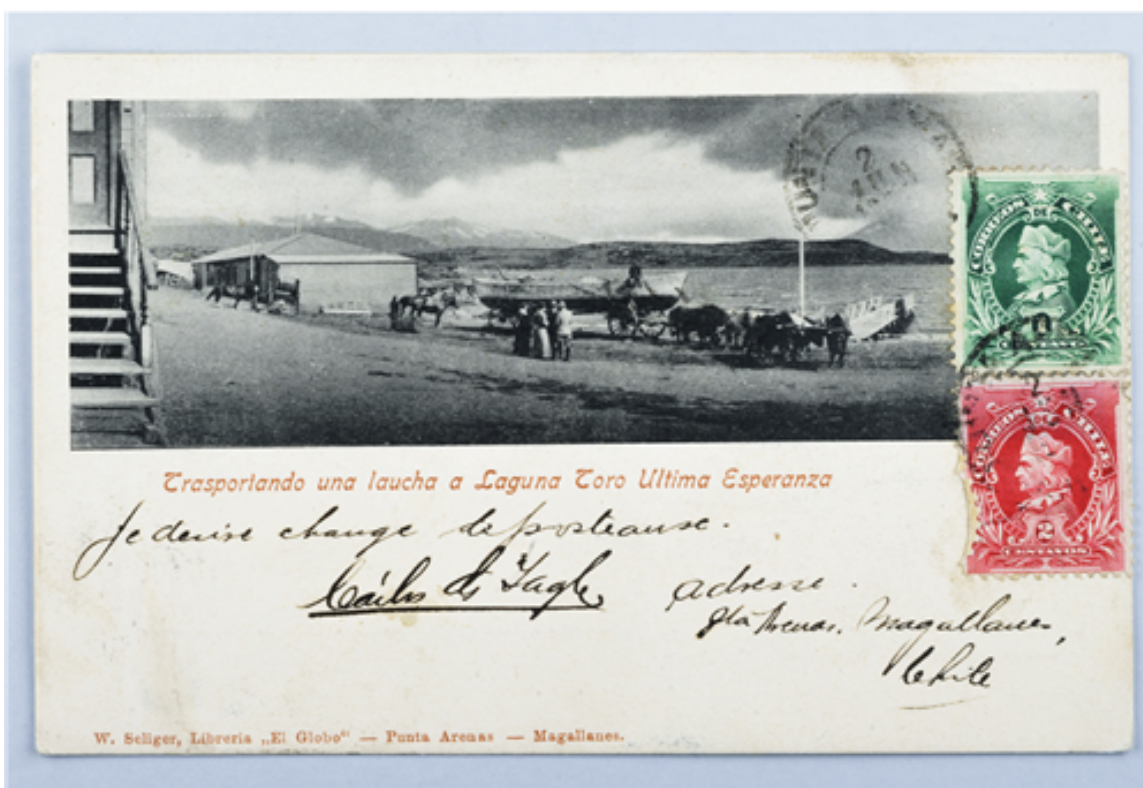 2
JUN
CORREOS DE CHILE
CENTAVO
CORREOS DE CHILE
2
CENTAVOS
Trasportando una laucha a Laguna Toro Ultima Esperanza
Je desire change de
Carlos
adresse.
Pta Arenas. Magallanes,
Chile
W. Seliger, Libreria „El Globo“ — Punta Arenas — Magallanes.